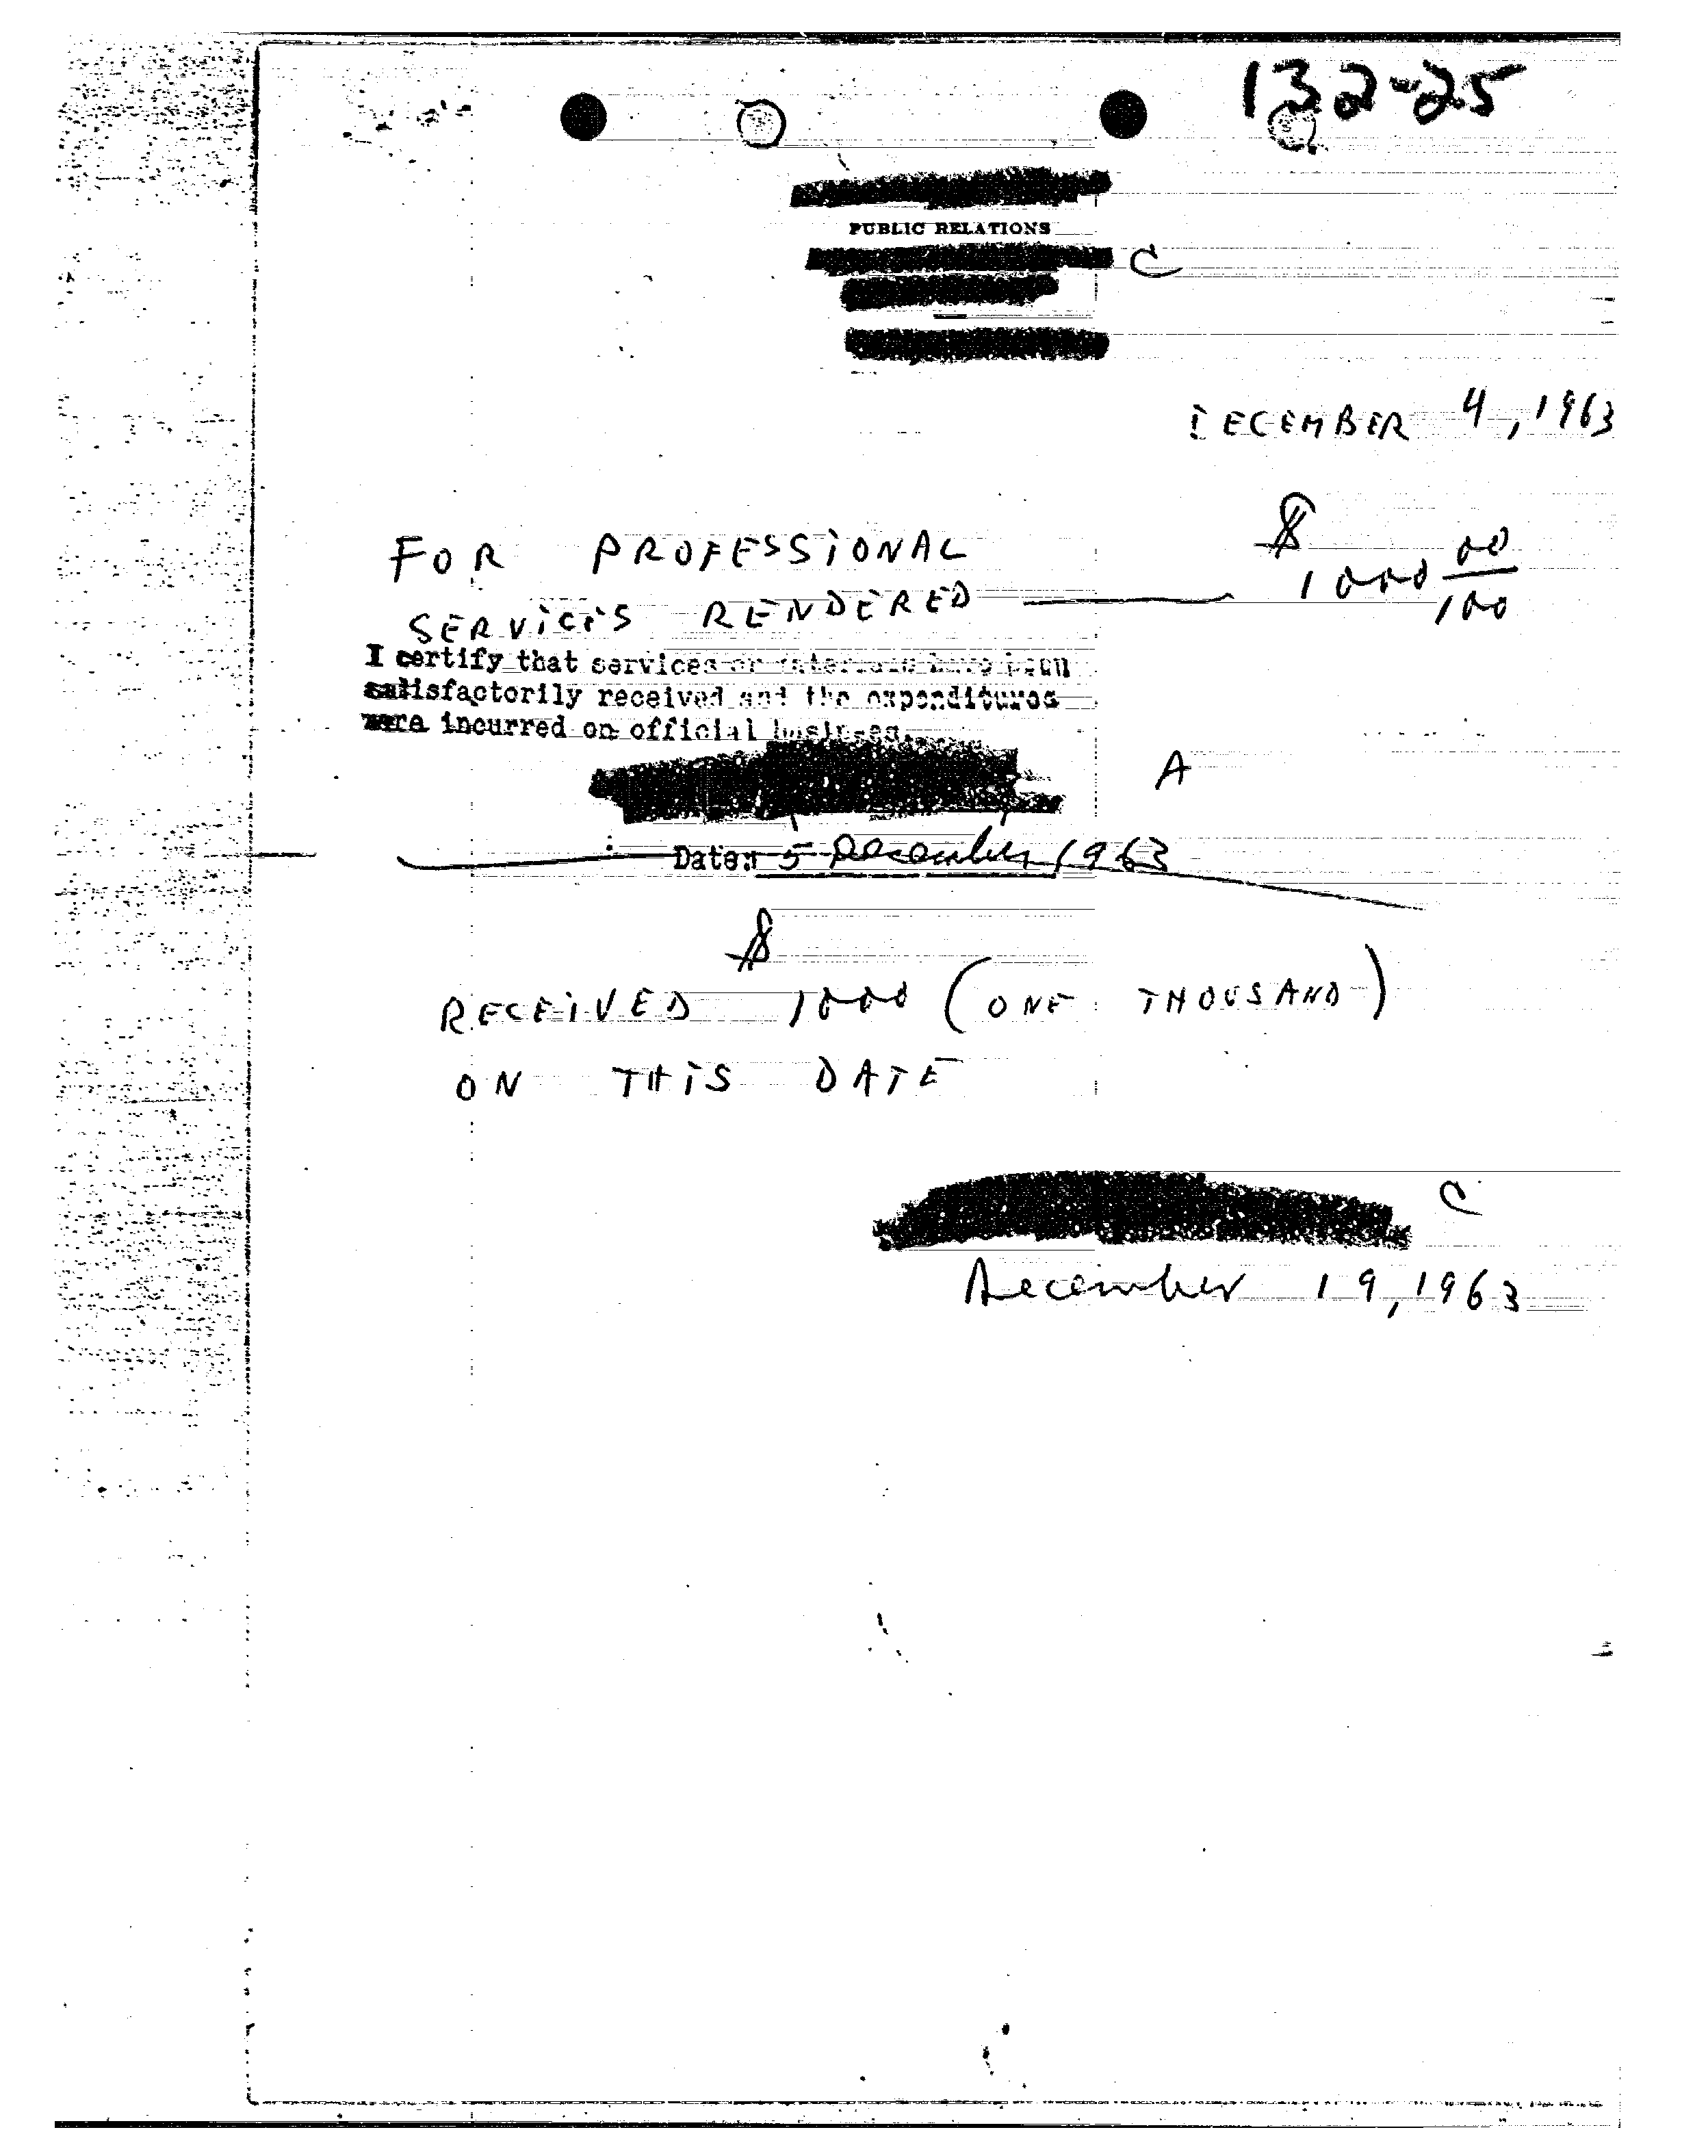 132-25
PUBLIC RELATIONS
C
DECEMBER 4, 1963
FOR PROFESSIONAL $
SERVICES RENDERED — 1000 00/100
I certify that services or materials have been
satisfactorily received and the expenditures
were incurred on official business.
A
Date: 5 December 1963
$
RECEIVED 1000 (ONE THOUSAND)
ON THIS DATE
C
December 19, 1963